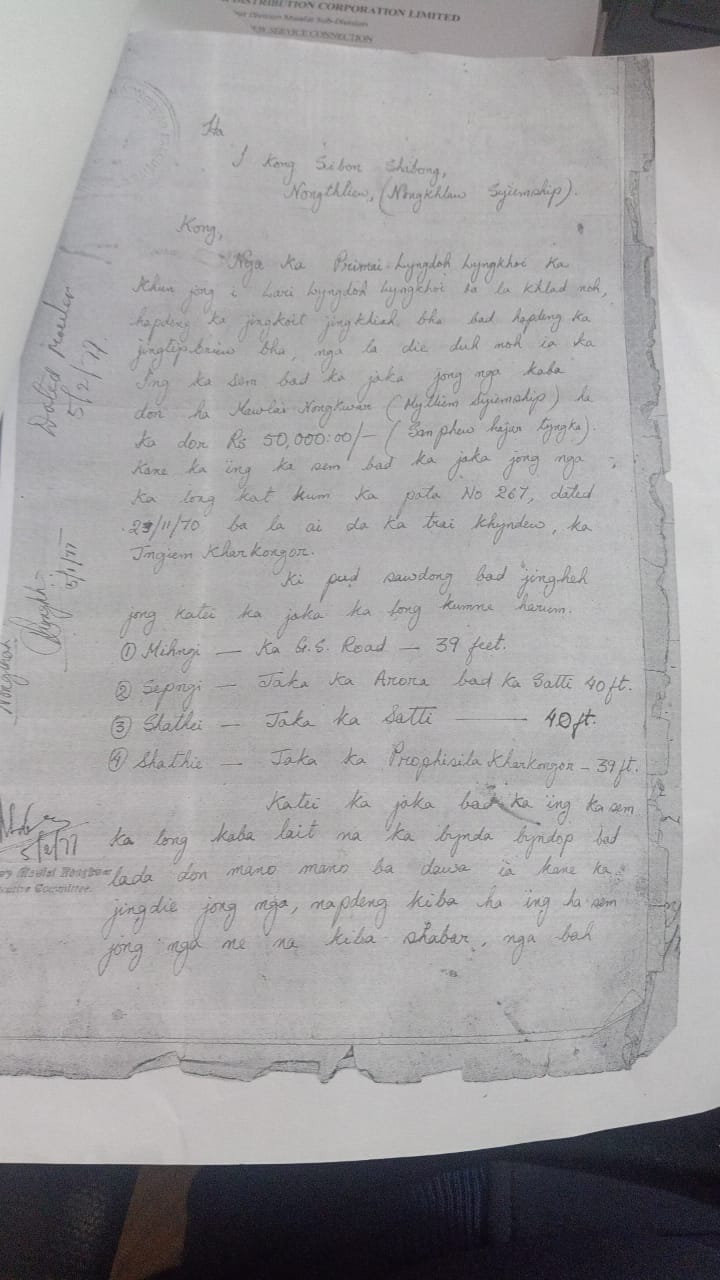 DISTRIBUTION CORPORATION LIMITED
Division Mawlai Sub-Division
SERVICE CONNECTION
Ha
I Kong Sibon Shabong,
Nongthliew, (Nongkhlaw Syiemship).
Kong,
Nga Ka Primai Lyngdoh Lyngkhoi Ka
Khun jong i Lari Lyngdoh Lyngkhoi ba la khlad noh,
hapdeng ka jingkoit jingkhiah bha bad hapdeng ka
jingtip briew bha, nga la die duh noh ia ka
Ïng ka sem bad ka jaka jong nga kaba
don ha Mawlai Nongkwar (Mylliem Syiemship) ha
Ka dor Rs 50,000:00/- (San phew hajar tyngka).
Kane ka ïng ka sem bad ka jaka jong nga
Ka long kat kum ka pata No 267, dated
/11/70 ba la ai da ka trai khyndew, ka
Ingiem Kharkongor.
Ki pud sawdong bad jingheh
jong katei ka jaka ka long kumne harum.
① Mihngi — Ka G.S. Road — 39 feet.
② Sepngi — Jaka ka Arora bad ka Satti 40 ft.
③ Shathei — Jaka ka Satti — 40 ft.
④ Shathie — Jaka ka Prophisila Kharkongor – 39 ft.
Katei ka jaka bad ka ïng ka sem
ka long kaba lait na ka bynda byndop bad
lada don mano mano ba dawa ia kane ka
jingdie jong nga, napdeng kiba ha ïng ha sem
jong nga ne na kiba shabar, nga bah
Dated Mawlai
5/2/77.
5/2/77
5/2/77
Executive Committee.